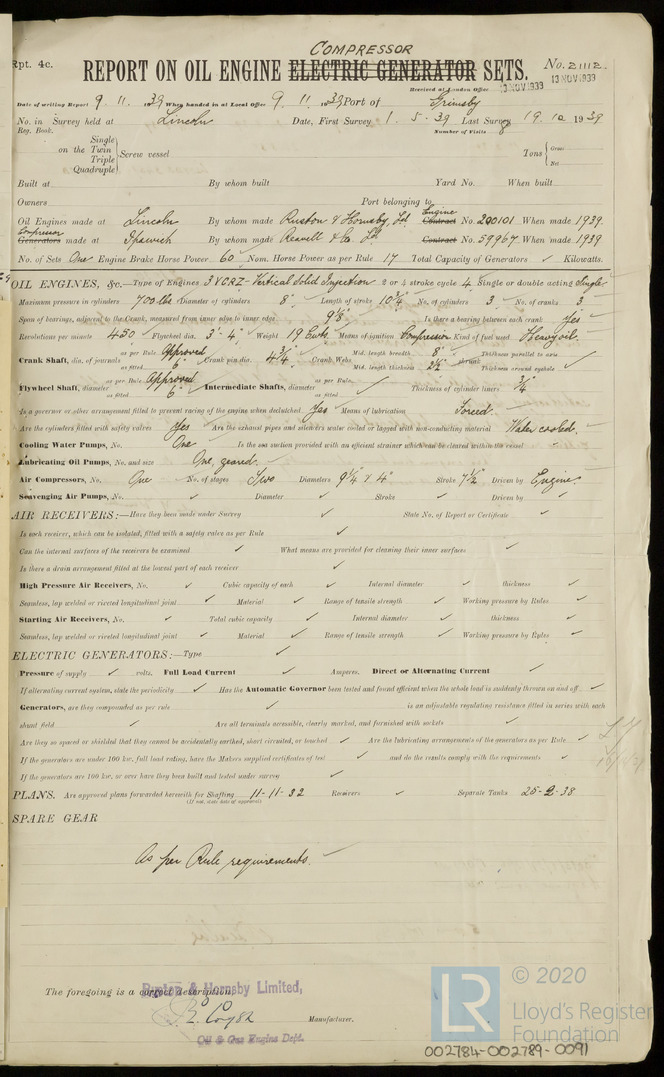 COMPRESSOR
Rpt. 4c. REPORT ON OIL ENGINE ELECTRIC GENERATOR SETS. No. 21112
Received at London Office 13 NOV 1933 13 NOV 1933
Date of writing Report 9. 11. 1939 When handed in at Local Office 9. 11. 1939 Port of Grimsby
No. in Survey held at Lincoln Date, First Survey 1. 5-39 Last Survey 19. 10 1939
Reg. Book. Number of Visits 8
Single
on the Twin
Triple
Quadruple
Screw vessel
Tons { Gross
Net
Built at By whom built Yard No. When built
Owners Port belonging to
Oil Engines made at Lincoln By whom made Ruston & Hornsby, Ld Engine Contract No. 200101 When made 1939
Compressor
Generators made at Ipswich By whom made Reavell & Co. Ld Contract No. 59967 When made 1939
No. of Sets One Engine Brake Horse Power 60 Nom. Horse Power as per Rule 17 Total Capacity of Generators ✓ Kilowatts.
OIL ENGINES, &c.—Type of Engines 3 VCRZ - Vertical Solid Injection 2 or 4 stroke cycle 4 Single or double acting Single
Maximum pressure in cylinders 700 lbs Diameter of cylinders 8" Length of stroke 10 3/4 No. of cylinders 3 No. of cranks 3
Span of bearings, adjacent to the Crank, measured from inner edge to inner edge 9 1/8" Is there a bearing between each crank Yes
Revolutions per minute 450 Flywheel dia. 3'-4" Weight 19 Cwts. Means of ignition Compression Kind of fuel used Heavy oil.
Crank Shaft, dia. of journals as per Rule Approved as fitted 6" Crank pin dia. 4 3/4" Crank Webs Mid. length breadth 8" Mid. length thickness 2 1/2" shrunk Thickness parallel to axis Thickness around eyehole ✓
Flywheel Shaft, diameter as per Rule Approved as fitted 6" Intermediate Shafts, diameter as per Rule as fitted Thickness of cylinder liners 3/4"
Is a governor or other arrangement fitted to prevent racing of the engine when declutched Yes Means of lubrication Forced.
Are the cylinders fitted with safety valves Yes Are the exhaust pipes and silencers water cooled or lagged with non-conducting material Water cooled.
Cooling Water Pumps, No. One Is the sea suction provided with an efficient strainer which can be cleared within the vessel ✓
Lubricating Oil Pumps, No. and size One, geared.
Air Compressors, No. One No. of stages Two Diameters 9 1/4 & 4" Stroke 7 1/2" Driven by Engine.
Scavenging Air Pumps, No. ✓ Diameter ✓ Stroke ✓ Driven by ✓
AIR RECEIVERS:—Have they been made under Survey ✓ State No. of Report or Certificate ✓
Is each receiver, which can be isolated, fitted with a safety valve as per Rule ✓
Can the internal surfaces of the receivers be examined ✓ What means are provided for cleaning their inner surfaces ✓
Is there a drain arrangement fitted at the lowest part of each receiver ✓
High Pressure Air Receivers, No. ✓ Cubic capacity of each ✓ Internal diameter ✓ thickness ✓
Seamless, lap welded or riveted longitudinal joint ✓ Material ✓ Range of tensile strength ✓ Working pressure by Rules ✓
Starting Air Receivers, No. ✓ Total cubic capacity ✓ Internal diameter ✓ thickness ✓
Seamless, lap welded or riveted longitudinal joint ✓ Material ✓ Range of tensile strength ✓ Working pressure by Rules ✓
ELECTRIC GENERATORS:—Type ✓
Pressure of supply ✓ volts. Full Load Current ✓ Amperes. Direct or Alternating Current ✓
If alternating current system, state the periodicity ✓ Has the Automatic Governor been tested and found efficient when the whole load is suddenly thrown on and off ✓
Generators, are they compounded as per rule ✓ is an adjustable regulating resistance fitted in series with each
shunt field ✓ Are all terminals accessible, clearly marked, and furnished with sockets ✓
Are they so spaced or shielded that they cannot be accidentally earthed, short circuited, or touched ✓ Are the lubricating arrangements of the generators as per Rule ✓
If the generators are under 100 kw. full load rating, have the Makers supplied certificates of test ✓ and do the results comply with the requirements ✓
If the generators are 100 kw. or over have they been built and tested under survey ✓
PLANS. Are approved plans forwarded herewith for Shafting 11-11-32 Receivers ✓ Separate Tanks 25-2-38
(If not, state date of approval)
SPARE GEAR
As per Rule requirements.
The foregoing is a correct description,
Ruston & Hornsby Limited,
Manufacturer.
Oil & Gas Engine Dept.
LR © 2020
Lloyd's Register
Foundation
002784-002789-0091